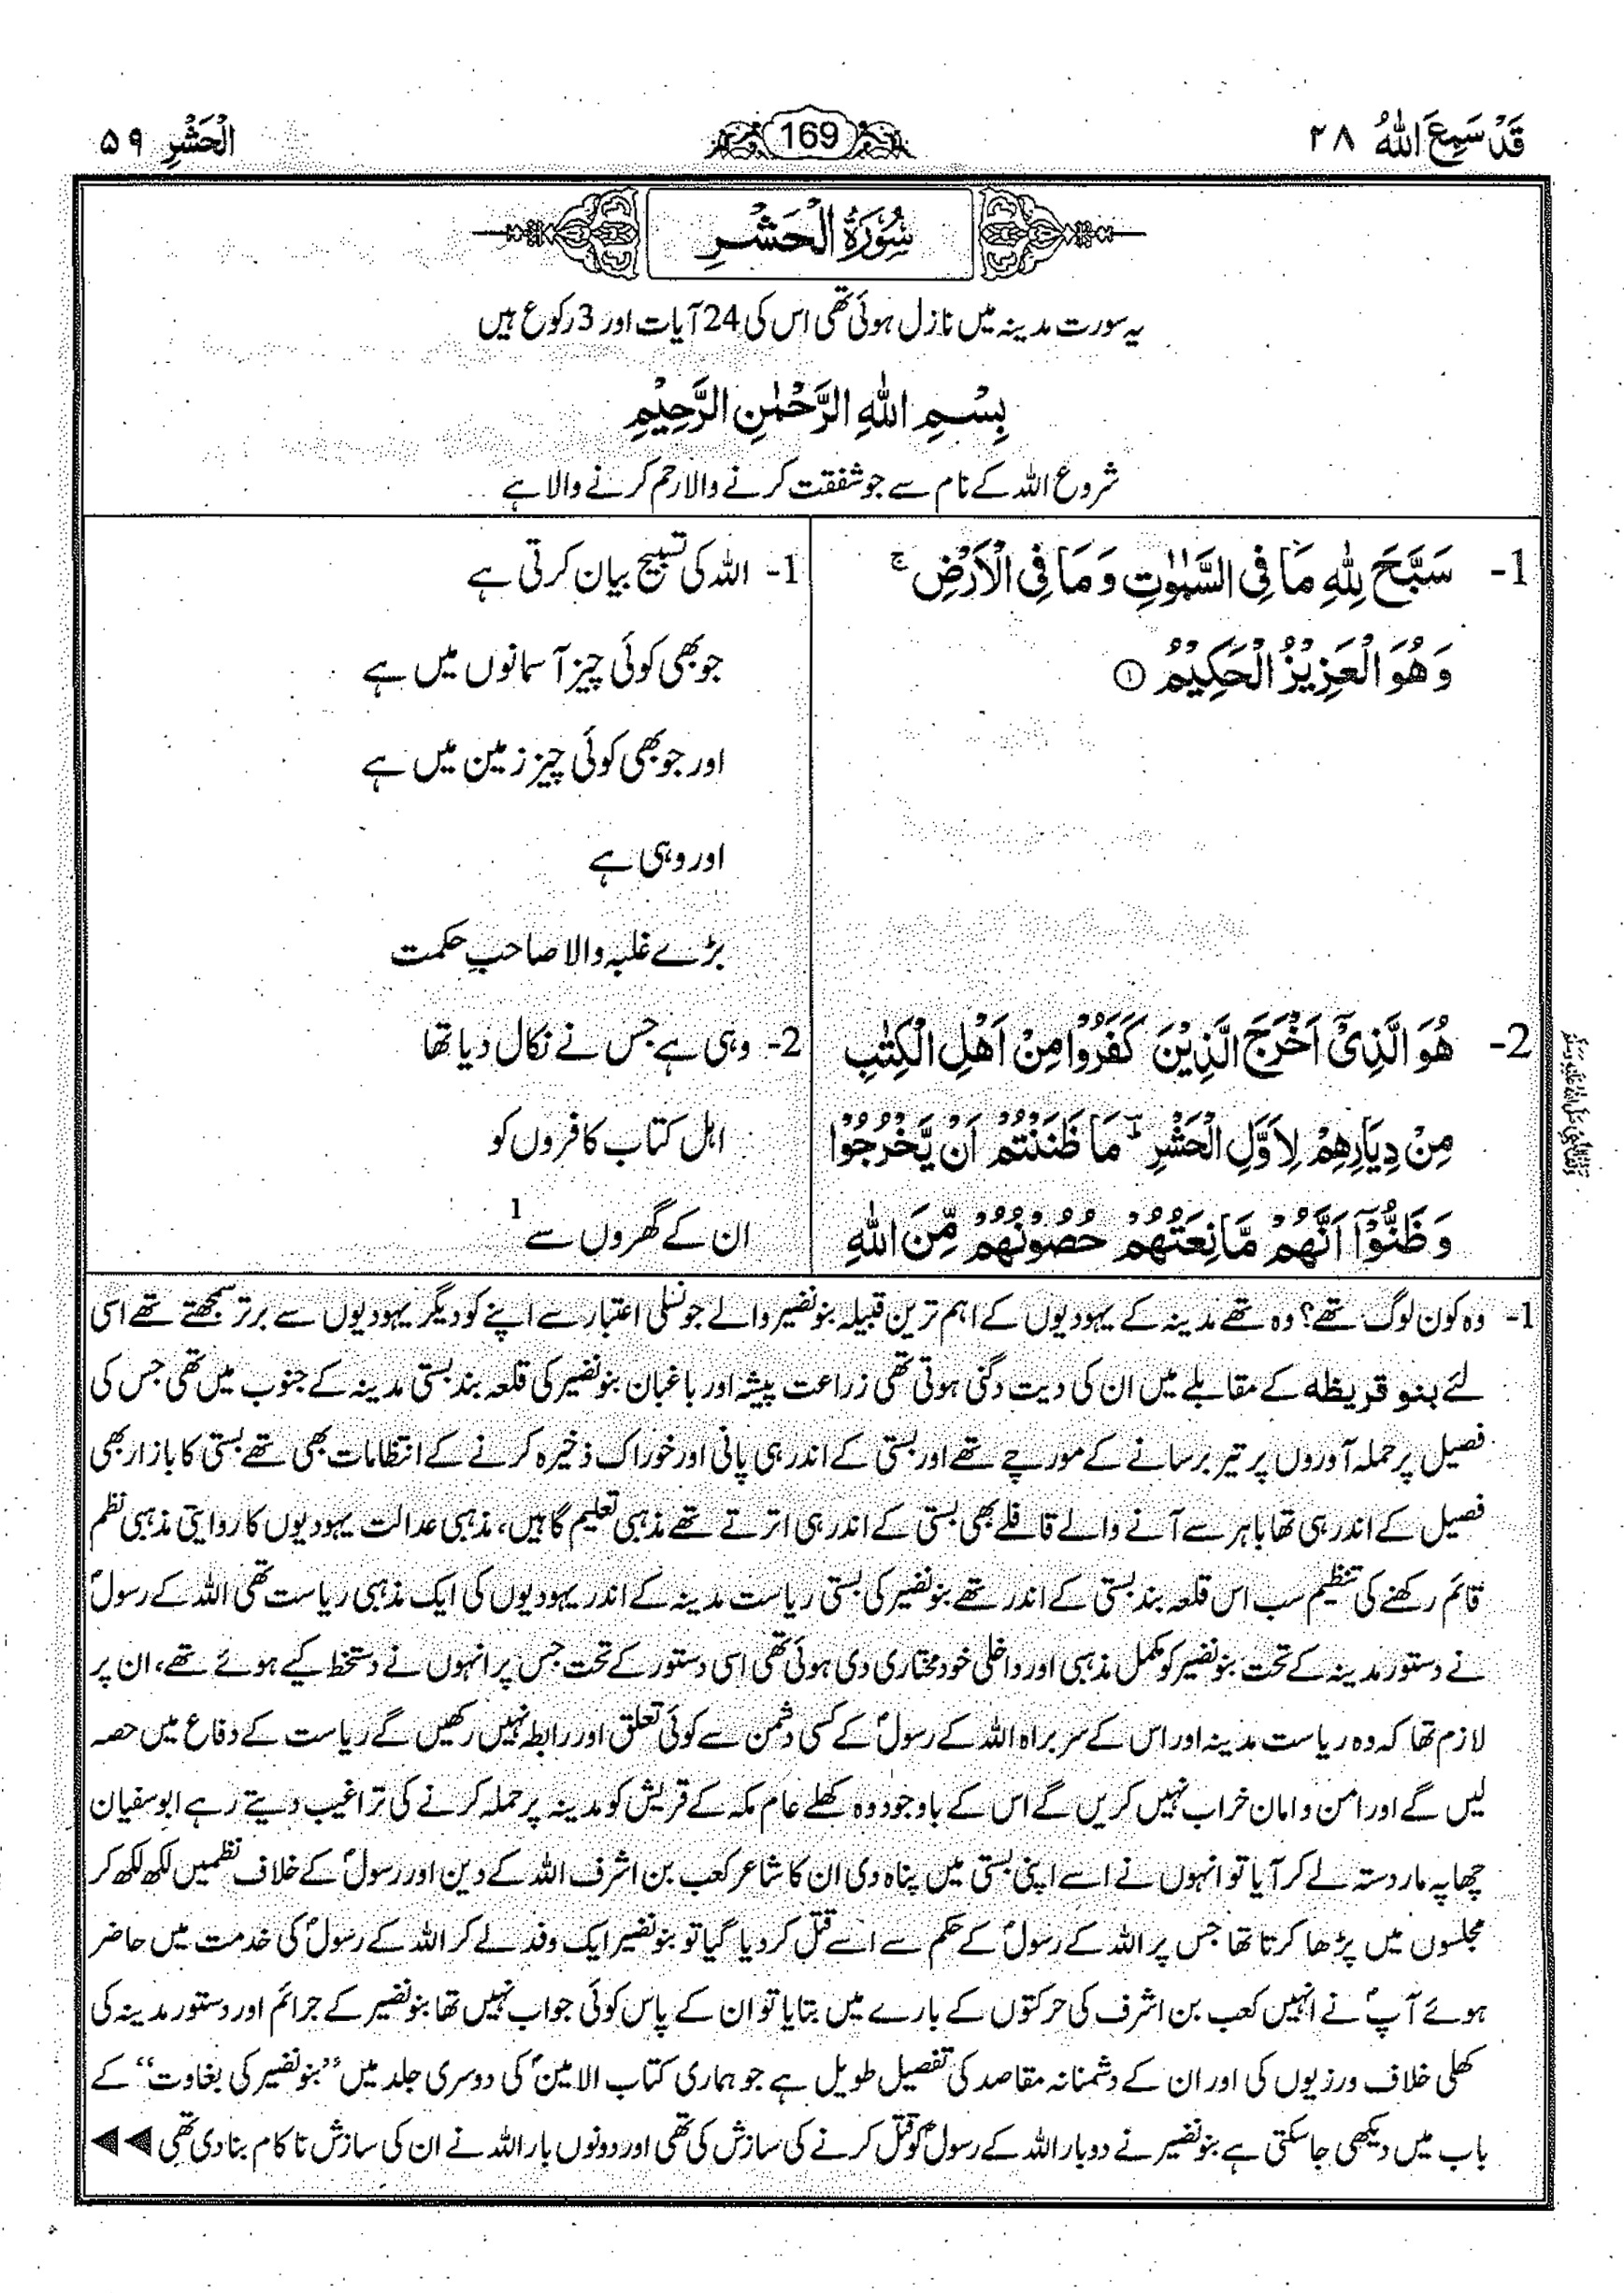 قَدْ سَمِعَ اللّٰهُ ۲۸
169
الْحَشْرِ ۵۹
سُوْرَةُ الْحَشْرِ
یہ سورت مدینہ میں نازل ہوئی تھی اس کی 24 آیات اور 3 رکوع ہیں
بِسْمِ اللّٰهِ الرَّحْمٰنِ الرَّحِيْمِ
شروع اللہ کے نام سے جو شفقت کرنے والا رحم کرنے والا ہے
1- سَبَّحَ لِلّٰهِ مَا فِي السَّمٰوٰتِ وَمَا فِي الْاَرْضِ ۚ
وَهُوَ الْعَزِيْزُ الْحَكِيْمُ ۱
2- هُوَ الَّذِيْٓ اَخْرَجَ الَّذِيْنَ كَفَرُوْا مِنْ اَهْلِ الْكِتٰبِ
مِنْ دِيَارِهِمْ لِاَوَّلِ الْحَشْرِ ؕ مَا ظَنَنْتُمْ اَنْ يَّخْرُجُوْا
وَظَنُّوْٓا اَنَّهُمْ مَّانِعَتُهُمْ حُصُوْنُهُمْ مِّنَ اللّٰهِ
1- اللہ کی تسبیح بیان کرتی ہے
جو بھی کوئی چیز آسمانوں میں ہے
اور جو بھی کوئی چیز زمین میں ہے
اور وہی ہے
بڑے غلبہ والا صاحبِ حکمت
2- وہی ہے جس نے نکال دیا تھا
اہل کتاب کافروں کو
ان کے گھروں سے 1
1- وہ کون لوگ تھے؟ وہ تھے مدینہ کے یہودیوں کے اہم ترین قبیلہ بنونضیر والے جو نسلی اعتبار سے اپنے کو دیگر یہودیوں سے برتر سمجھتے تھے اسی
لئے بنو قریظہ کے مقابلے میں ان کی دیت دگنی ہوتی تھی زراعت پیشہ اور باغبان بنونضیر کی قلعہ بند بستی مدینہ کے جنوب میں تھی جس کی
فصیل پر حملہ آوروں پر تیر برسانے کے مورچے تھے اور بستی کے اندر ہی پانی اور خوراک ذخیرہ کرنے کے انتظامات بھی تھے بستی کا بازار بھی
فصیل کے اندر ہی تھا باہر سے آنے والے قافلے بھی بستی کے اندر ہی اترتے تھے مذہبی تعلیم گاہیں، مذہبی عدالت یہودیوں کا روایتی مذہبی نظم
قائم رکھنے کی تنظیم سب اس قلعہ بند بستی کے اندر تھے بنونضیر کی بستی ریاست مدینہ کے اندر یہودیوں کی ایک مذہبی ریاست تھی اللہ کے رسولؐ
نے دستور مدینہ کے تحت بنونضیر کو مکمل مذہبی اور داخلی خودمختاری دی ہوئی تھی اسی دستور کے تحت جس پر انہوں نے دستخط کیے ہوئے تھے، ان پر
لازم تھا کہ وہ ریاست مدینہ اور اس کے سربراہ اللہ کے رسولؐ کے کسی دشمن سے کوئی تعلق اور رابطہ نہیں رکھیں گے ریاست کے دفاع میں حصہ
لیں گے اور امن و امان خراب نہیں کریں گے اس کے باوجود وہ کھلے عام مکہ کے قریش کو مدینہ پر حملہ کرنے کی تراغیب دیتے رہے ابوسفیان
چھاپہ مار دستہ لے کر آیا تو انہوں نے اسے اپنی بستی میں پناہ دی ان کا شاعر کعب بن اشرف اللہ کے دین اور رسولؐ کے خلاف نظمیں لکھ لکھ کر
مجلسوں میں پڑھا کرتا تھا جس پر اللہ کے رسولؐ کے حکم سے اسے قتل کر دیا گیا تو بنونضیر ایک وفد لے کر اللہ کے رسولؐ کی خدمت میں حاضر
ہوئے آپؐ نے انہیں کعب بن اشرف کی حرکتوں کے بارے میں بتایا تو ان کے پاس کوئی جواب نہیں تھا بنونضیر کے جرائم اور دستور مدینہ کی
کھلی خلاف ورزیوں کی اور ان کے دشمنانہ مقاصد کی تفصیل طویل ہے جو ہماری کتاب الامینؐ کی دوسری جلد میں ’’بنونضیر کی بغاوت‘‘ کے
باب میں دیکھی جا سکتی ہے بنونضیر نے دو بار اللہ کے رسولؐ کو قتل کرنے کی سازش کی تھی اور دونوں بار اللہ نے ان کی سازش ناکام بنا دی تھی ◄◄